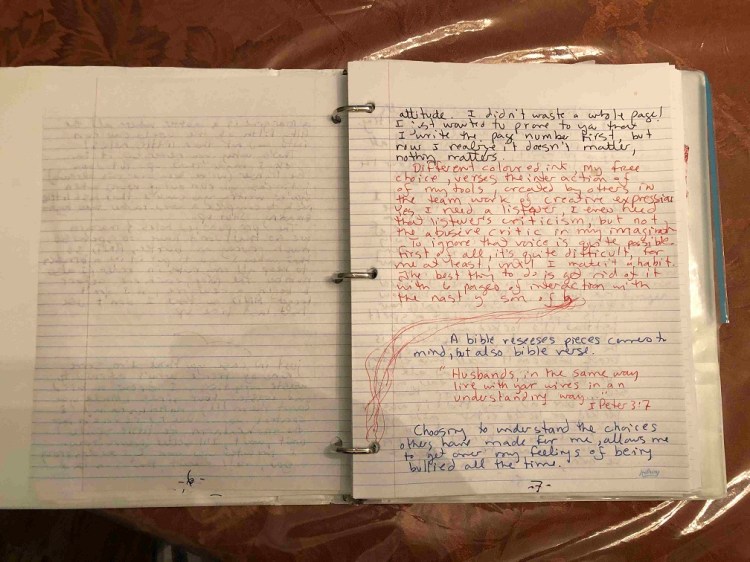 attitude. I didn't waste a whole page!
I just wanted to prove to ya that
I write the page number first, but
now I realize it doesn't matter,
nothing matters.
Different coloured ink, my free
choice, verses the interaction of
of my tools, created by others in
the team work of creative expression
Yes I need a listener, I even need
that listener's criticism, but not
the abusive critic in my imagination
To ignore that voice is quite possible.
First of all, it's quite difficult, for
me at least, until I make it a habit.
The best thing to do is get rid of it
with 6 pages of interaction with
the nasty son of b
A bible reseeses pieces comes to
mind, but also bible verse.
"Husbands, in the same way
live with your wives in an
understanding way..."
I Peter 3:7
Choosing to understand the choices
others have made for me, allows me
to get over my feelings of being
bullied all the time.
-6-
-7-